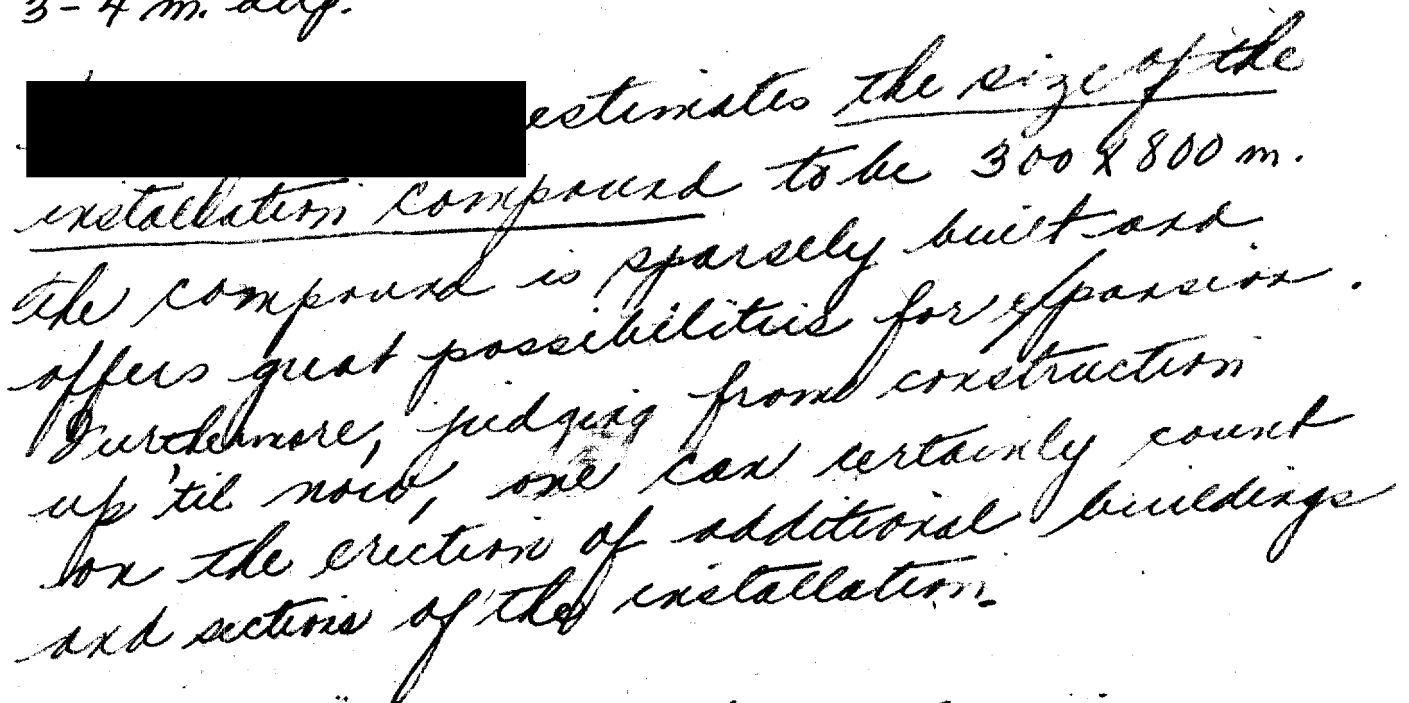 3-4 m. deep.
estimates the size of the
installation compound to be 300 x 800 m.
the compound is sparsely built and
offers great possibilities for expansion.
Furthermore, judging from construction
up 'til now, one can certainly count
on the erection of additional buildings
and sections of the installation.